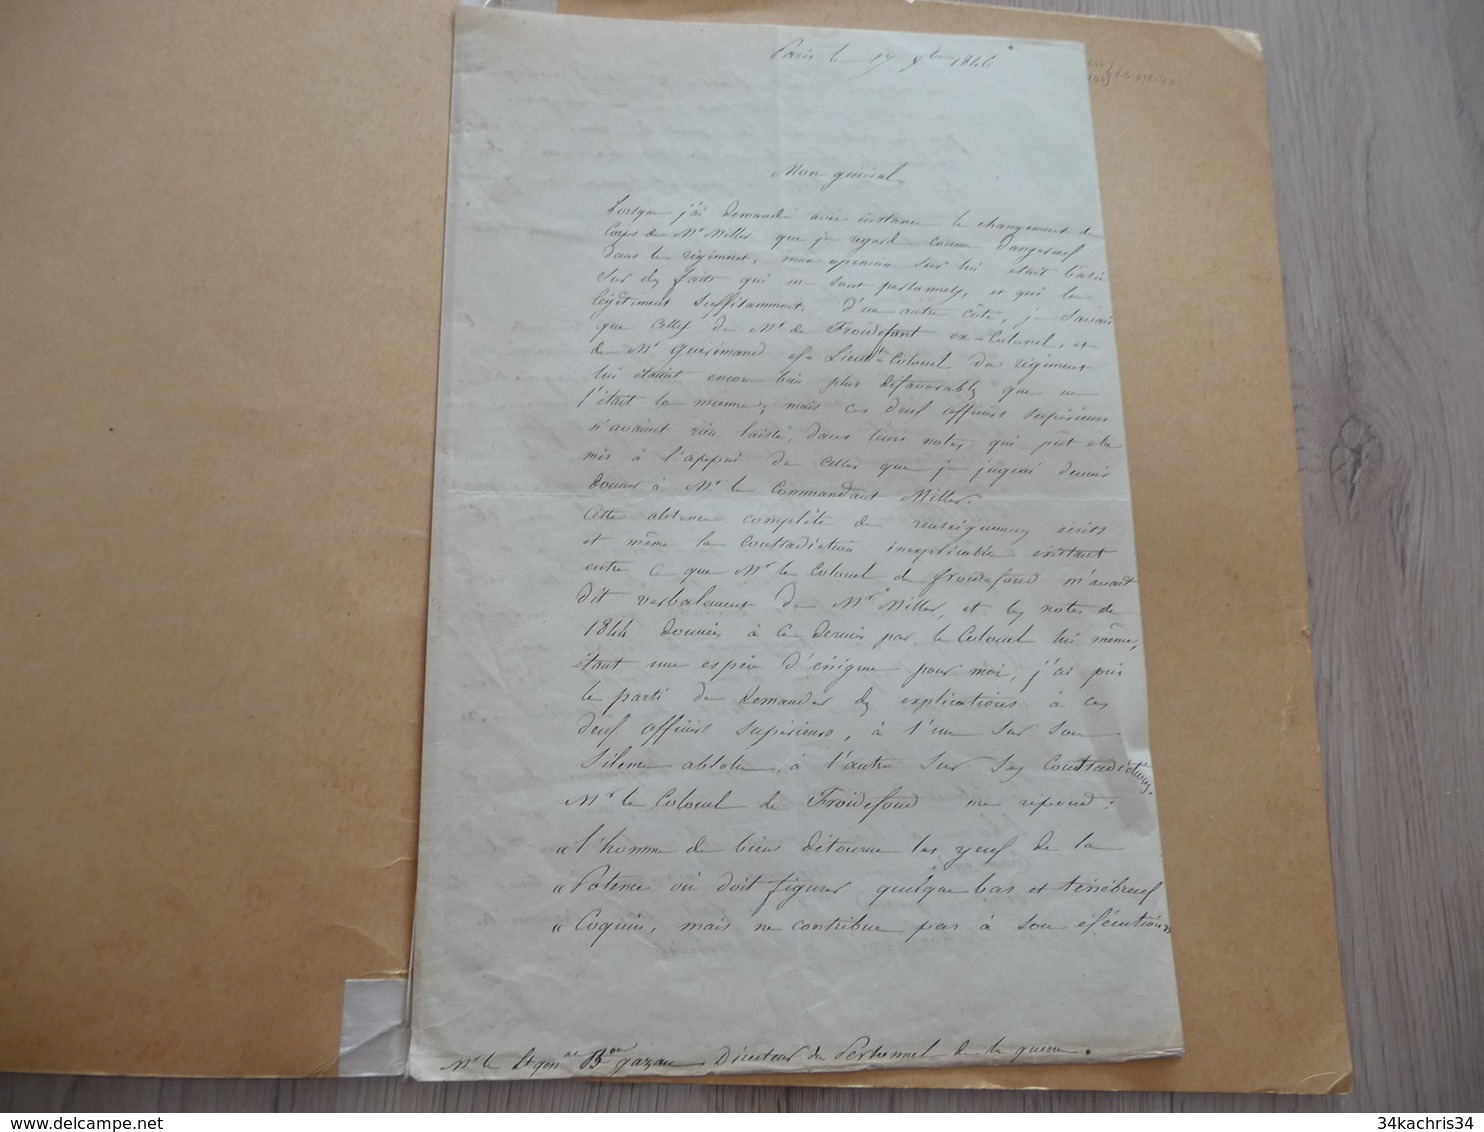 Paris le 17 xbre 1846
Mon général,
Lorsque j'ai demandé avec instance le changement de
Corps de Mr Miller que je regarde comme dangereux
dans le régiment, mon opinion sur lui était basée
sur des faits qui me sont personnels, et qui la
légitiment suffisamment. D'un autre côté, je savais
que celles de Mr de Froidefont ex-Colonel, et
de Mr Guerimand ex-Lieutt-Colonel du régiment
lui étaient encore bien plus défavorables que ne
l'était la mienne; mais ces deux officiers supérieurs
n'avaient rien laissé, dans leurs notes, qui pût être
mis à l'appui de celles que je jugeai devoir
donner à Mr le Commandant Miller.
Cette absence complète de renseignemens écrits
et même la contradiction inexplicable existant
entre ce que Mr le Colonel de Froidefond m'avait
dit verbalement de Mr Miller, et les notes de
1844 données à ce dernier par le Colonel lui même,
étant une espèce d'énigme pour moi, j'ai pris
le parti de demander des explications à ces
deux officiers supérieurs, à l'un sur son
silence absolu, à l'autre sur ses contradictions.
Mr le Colonel de Froidefond me répond:
« l'homme de bien détourne les yeux de la
« Potence où doit figurer quelque bas et ténébreux
« Coquin, mais ne contribue pas à son exécution
Mr le Lt génal Bon gazan Directeur du Personnel de la guerre.
34kachris34
34kachris34